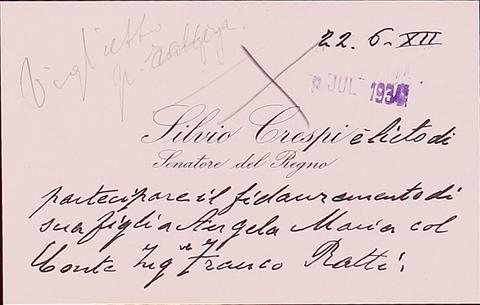 Biglietto
22.6-XII
JUL 1934
Silvio Crespi è lieto di
Senatore del Regno
partecipare il fidanzamento di
sua figlia Angela Maria col
Conte Ing. Franco Ratti.